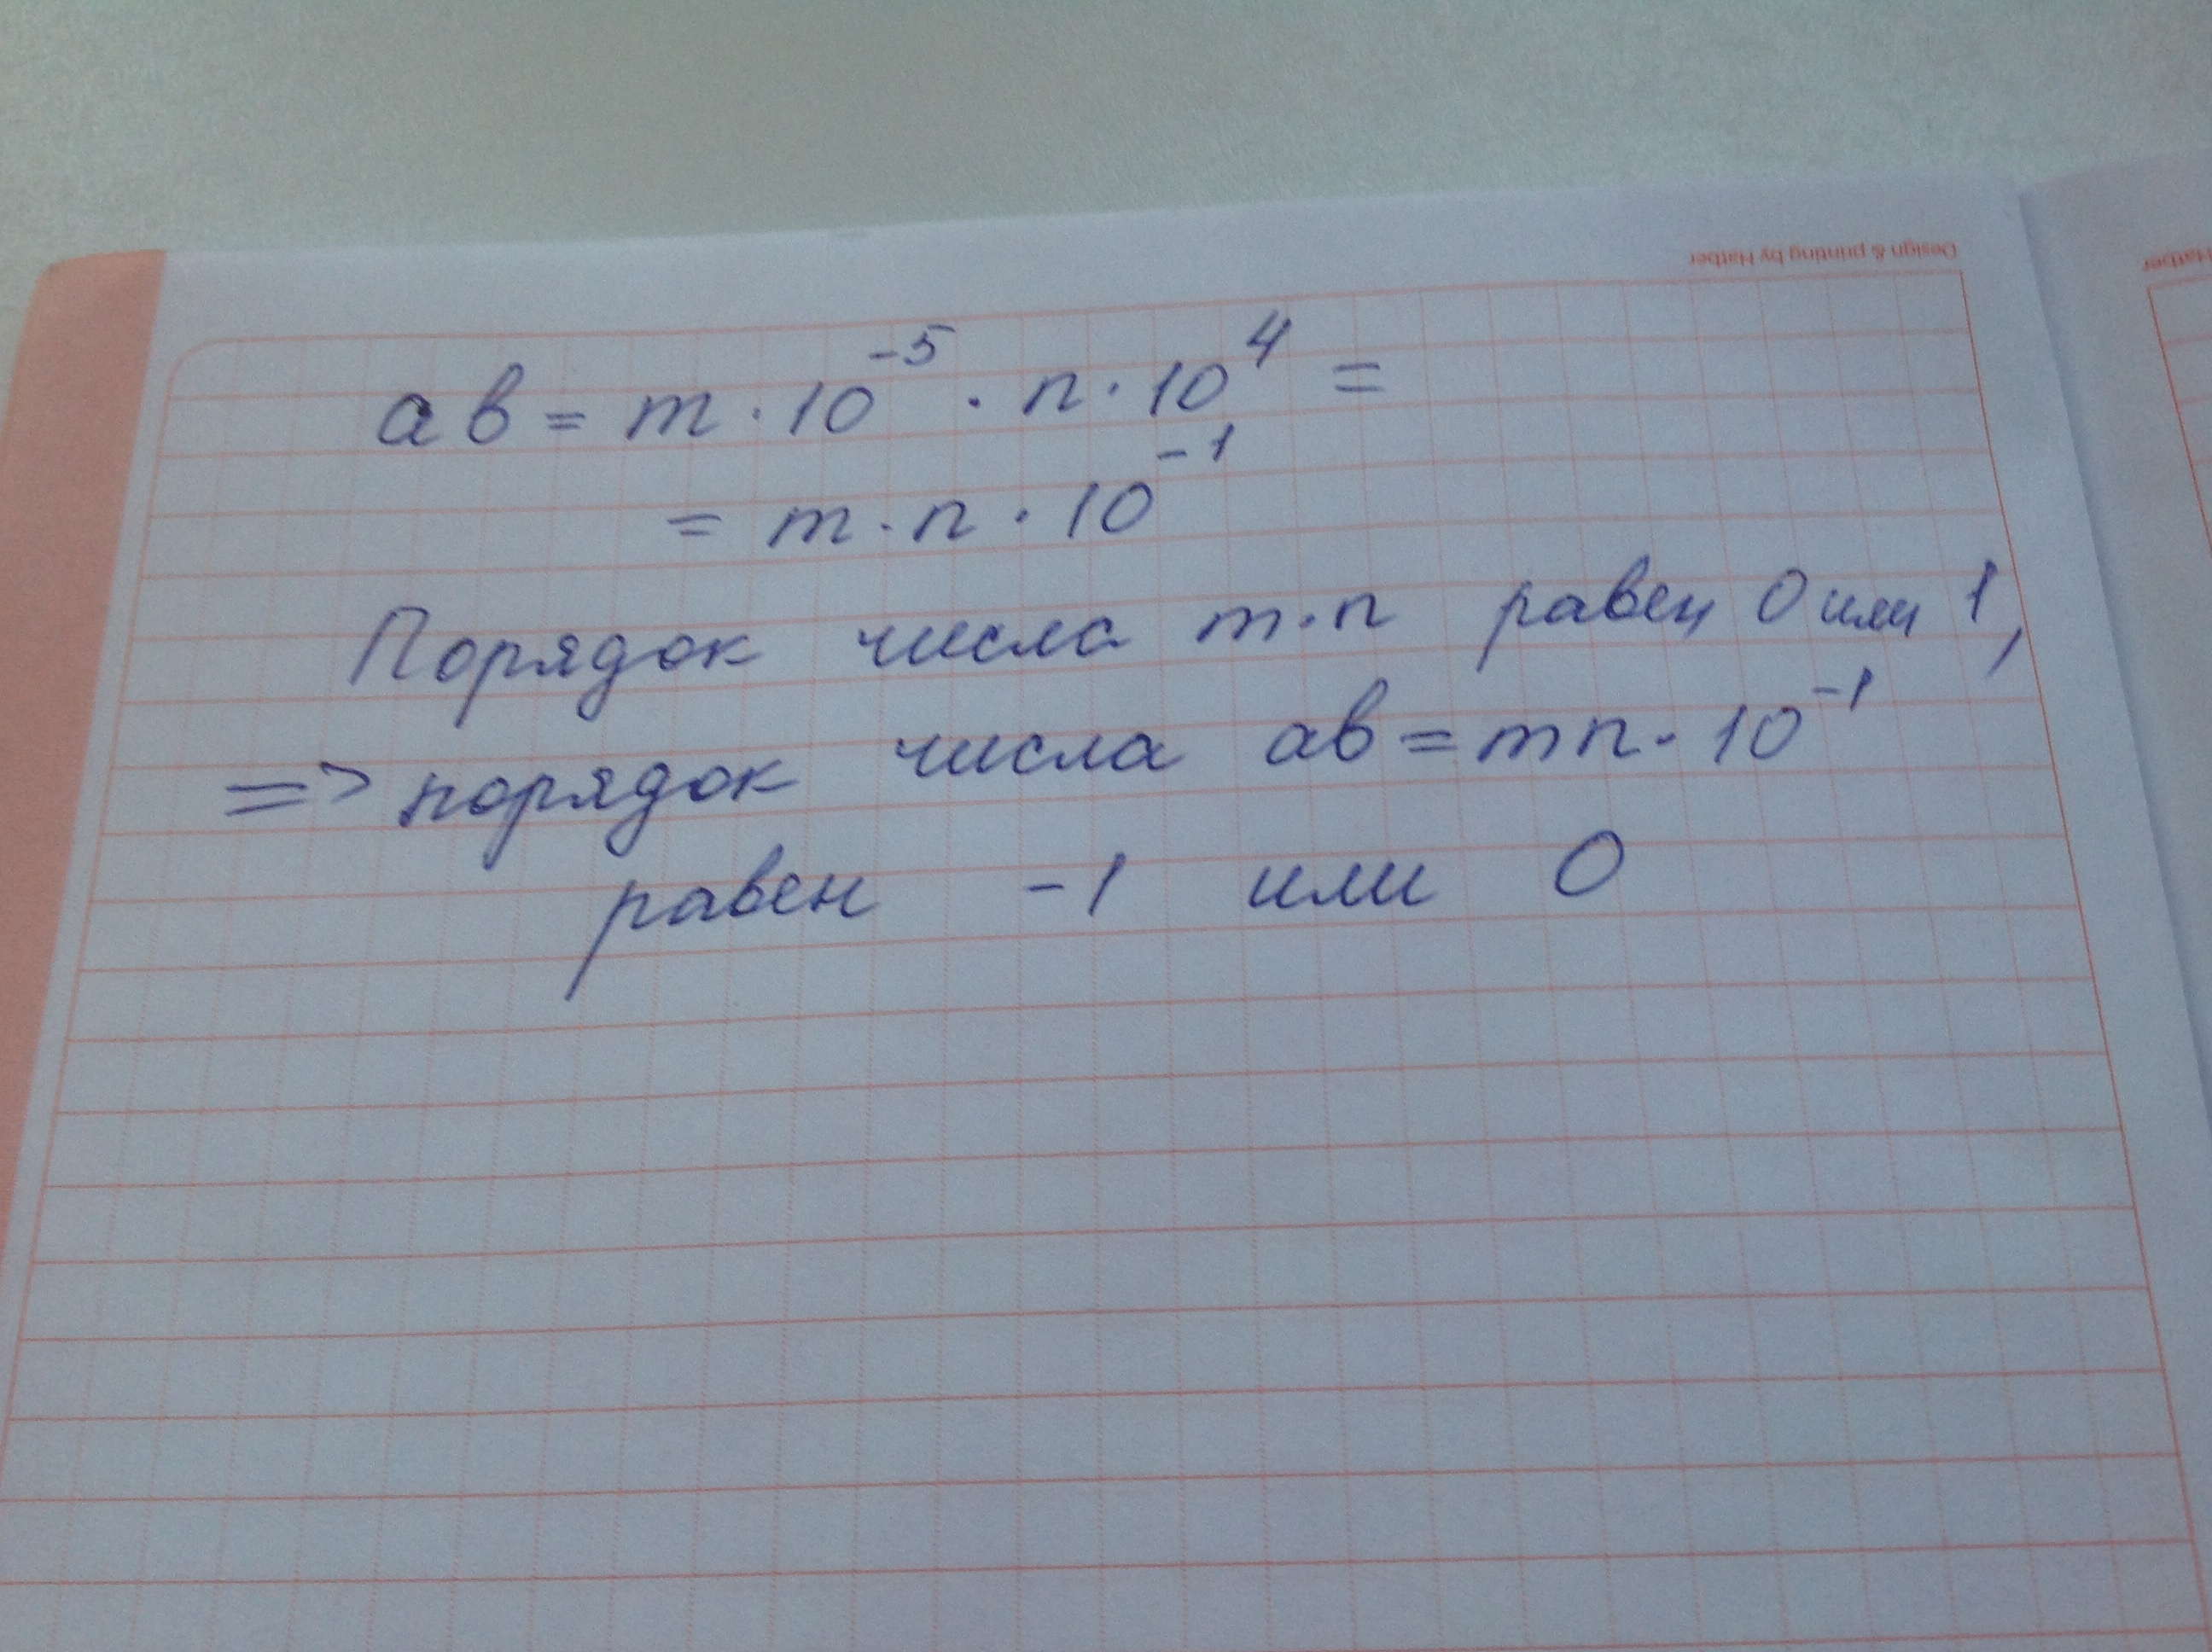 Design & printing by Hatber
Hatber
ab = m · 10⁻⁵ · n · 10⁴ =
= m · n · 10⁻¹
Порядок числа m·n равен 0 или 1,
=> порядок числа ab = mn · 10⁻¹
равен -1 или 0